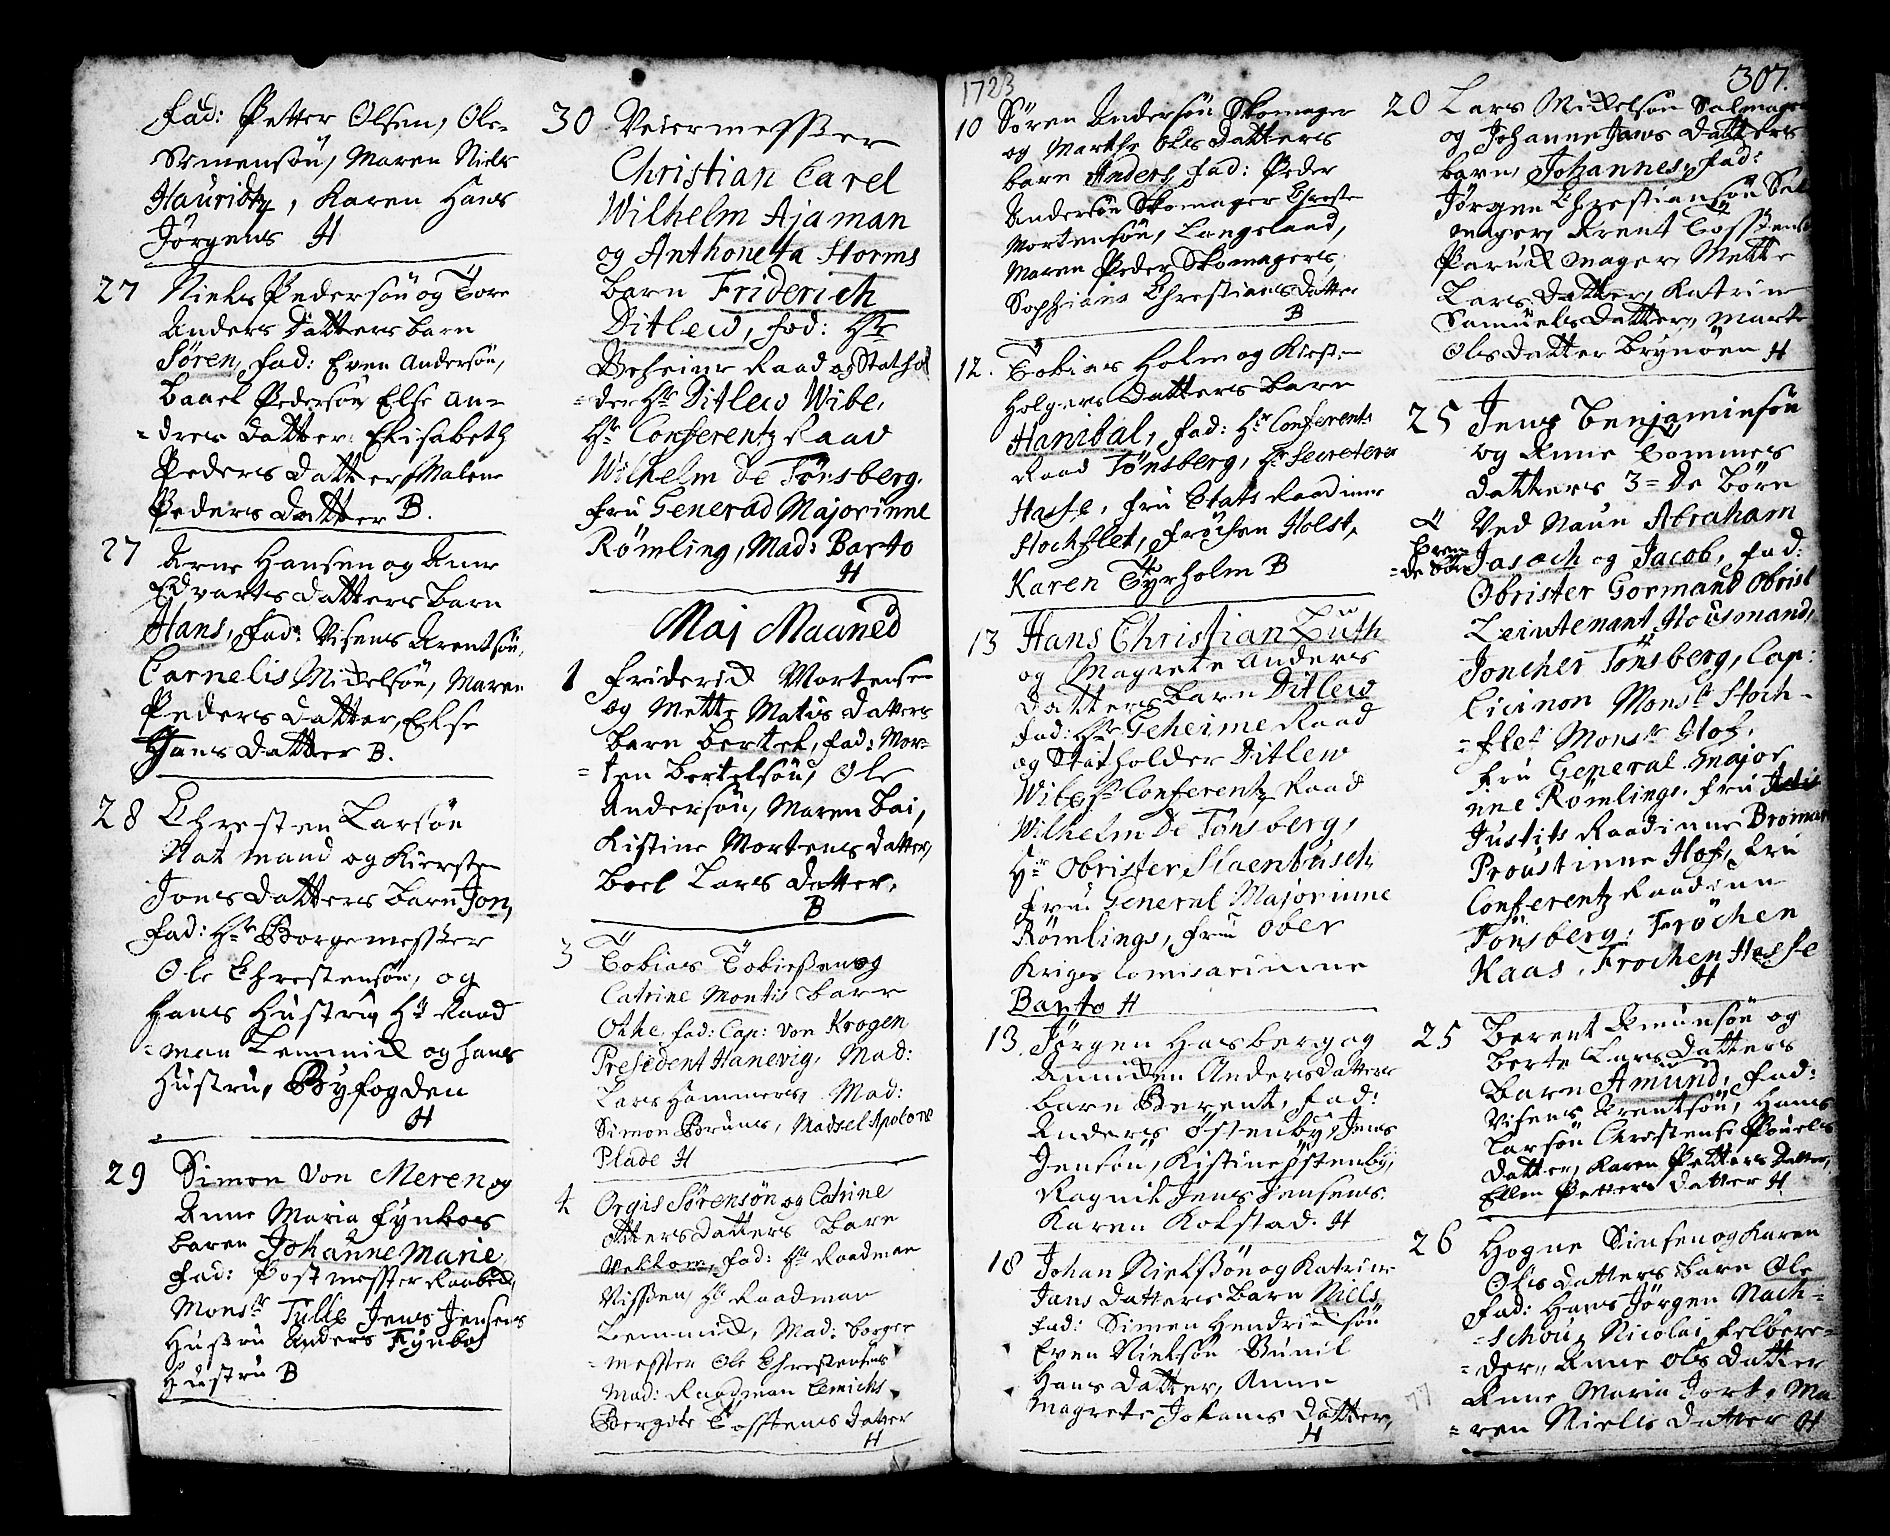 Fad: Petter Olsen, Ole-
Semensøn, Maren Niels
Hauridtz, Karen Hans
Jørgens H
27 Niels Pedersøn og Tore
Anders Datters barn
Søren, Fad: Even Andersøn,
Baael Pedersøn Else An-
=dres Datter: Elisabeth
Peders Datter, Malene
Peders Datter B.
27 Arne Hansen og Anne
Edvarts datters barn
Hans, Fad: Visens Arentsøn,
Carnelis Mickelsøn, Maren
Peders datter, Else
Hans Datter B.
28 Christen Larsøn
Hat mand og Kiersten
Jons Datters barn Jon,
Fad: Hr Borgemester
Ole Christensøn, og
Hans Hustru, Hr Raad
=man Lemmick og hans
Hustru, Byfogden
H
29 Simon Von Meren og
Anne Maria Fynbos
baren Johanne Marie
Fad: Postmester
Monsr Tulle Jens Jensens
Hustru Anders Fynbos
Hustru B
30 Veiermesser
Christian Carel
Wilhelm Ajaman
og Anthoneta Storms
barn Friderich
Ditlew, fad: Hr
Geheime Raad og Stathol
=der Hr Ditlew Wibe,
Hr Conferentz Raad
Wilhelm De Tønsberg,
Fru Generad Majorinne
Rømling, Mad: Barto
H
Maj Maaned
1 Friderick Mortensen
og Mette Matis Datters
barn bertel, fad: Mor-
=ten Bertelsøn, Ole
Andersøn, Maren Bai,
Kistine Mortens datter,
Boel Lars datter,
B
3 Tobias Tobiesen og
Catrine Montis barn
Othe, fad: Cap: von Krogen
President Hanevig, Mad:
Lars Hammers, Mad:
Simon Bruns, Madsel Apolone
Plade H
4 Orgis Sørensøn og Catrine
Otters datters barn
fad: Hr Raadman
Nissen, Hr Raadman
Lemmick, Mad: borger
=mester Ole Christensens
Mad: Raadman Lemichs
Bergite Tostens datter
H
1723
10 Søren Andersøn Skomager
og Marthe Ols datters
barn Anders, fad: Peder
Andersøn Skomager Chreste
Mortensøn, Langeland,
Maren Peder Skomagers,
Sophiane Chrestians datter
B
12. Tobias Holm og Kiersten
Holgers datters barn
Hanibal, fad: Hr Conferents
Raad Tønsberg, Hr Secreterer
Hasse, Fru Etats Raadinne
Stochflet, Frøchen Holst,
Karen Tyrholm B
13 Hans Christian Luth
og Magrete Anders
Datters barn Ditlew
Fad: Hr Geheime Raad
og Statholder Ditlew
Wibe Hr Conferentz Raad
Wilhelm De Tønsberg,
Hr Obrister Staenbusch,
Fru General Majorinne
Rømlings, Fru Ober
Kriges Comisarinne
Barto H
13. Jørgen Hasberg og
Annicken Anders datters
barn Berent, Fad:
Anders Østenby, Jens
Jensøn, Kistine Østenby,
Ragnil Jens Jensens.
Karen Kolstad. H
18 Johan Nielsøn og Katrine
Jans datters barn Niels
fad: Simen Hendricksøn
Even Nielsøn Gunil
Hans datter, Anne
Magrete Johans datter,
H
307.
20 Lars Mickelsøn Salmager
og Johanne Jans datters
barn, Johannes, fad:
Jørgen Chrestiansøn Sal
mager,
Paruck mager, Mette
Lars datter, Katrine
Samuels datter, Marte
Ols datter Brynøen H
25 Jens Benjaminsøn
og Anne Tommes
datters 3=de Børn
Ved Naun Abraham
Isaach og Jacob, fad:
Obrister Gormand Obrist
Leiutenant Housmand,
Joncher Tønsberg, Cap:
Cicinon Monsr Stoch-
=flet Monsr Hof,
Fru General Major
inne Rømlings, fru
Justits Raadinne Broman
Proustinne Hof, Fru
Conferentz Raadinne
Tønsberg, Frøchen
Kaas, Frochen Hasse
H
25 Berent Amunsøn og
Berte Lars datters
barn Amund, fad:
Visens Arentsøn, Hans
Larsøn Chrestense Pouels
datter, Karen Petters datter,
Ellen Petters datter H
26 Hogne Simsen og Karen
Ols datters barn Ole
Fad: Hans Jørgen Nach-
=schou, Nicolai Felbere=
=der, Anne Ols datter
Anne Maria Jort, Ma
=ren Niels datter H